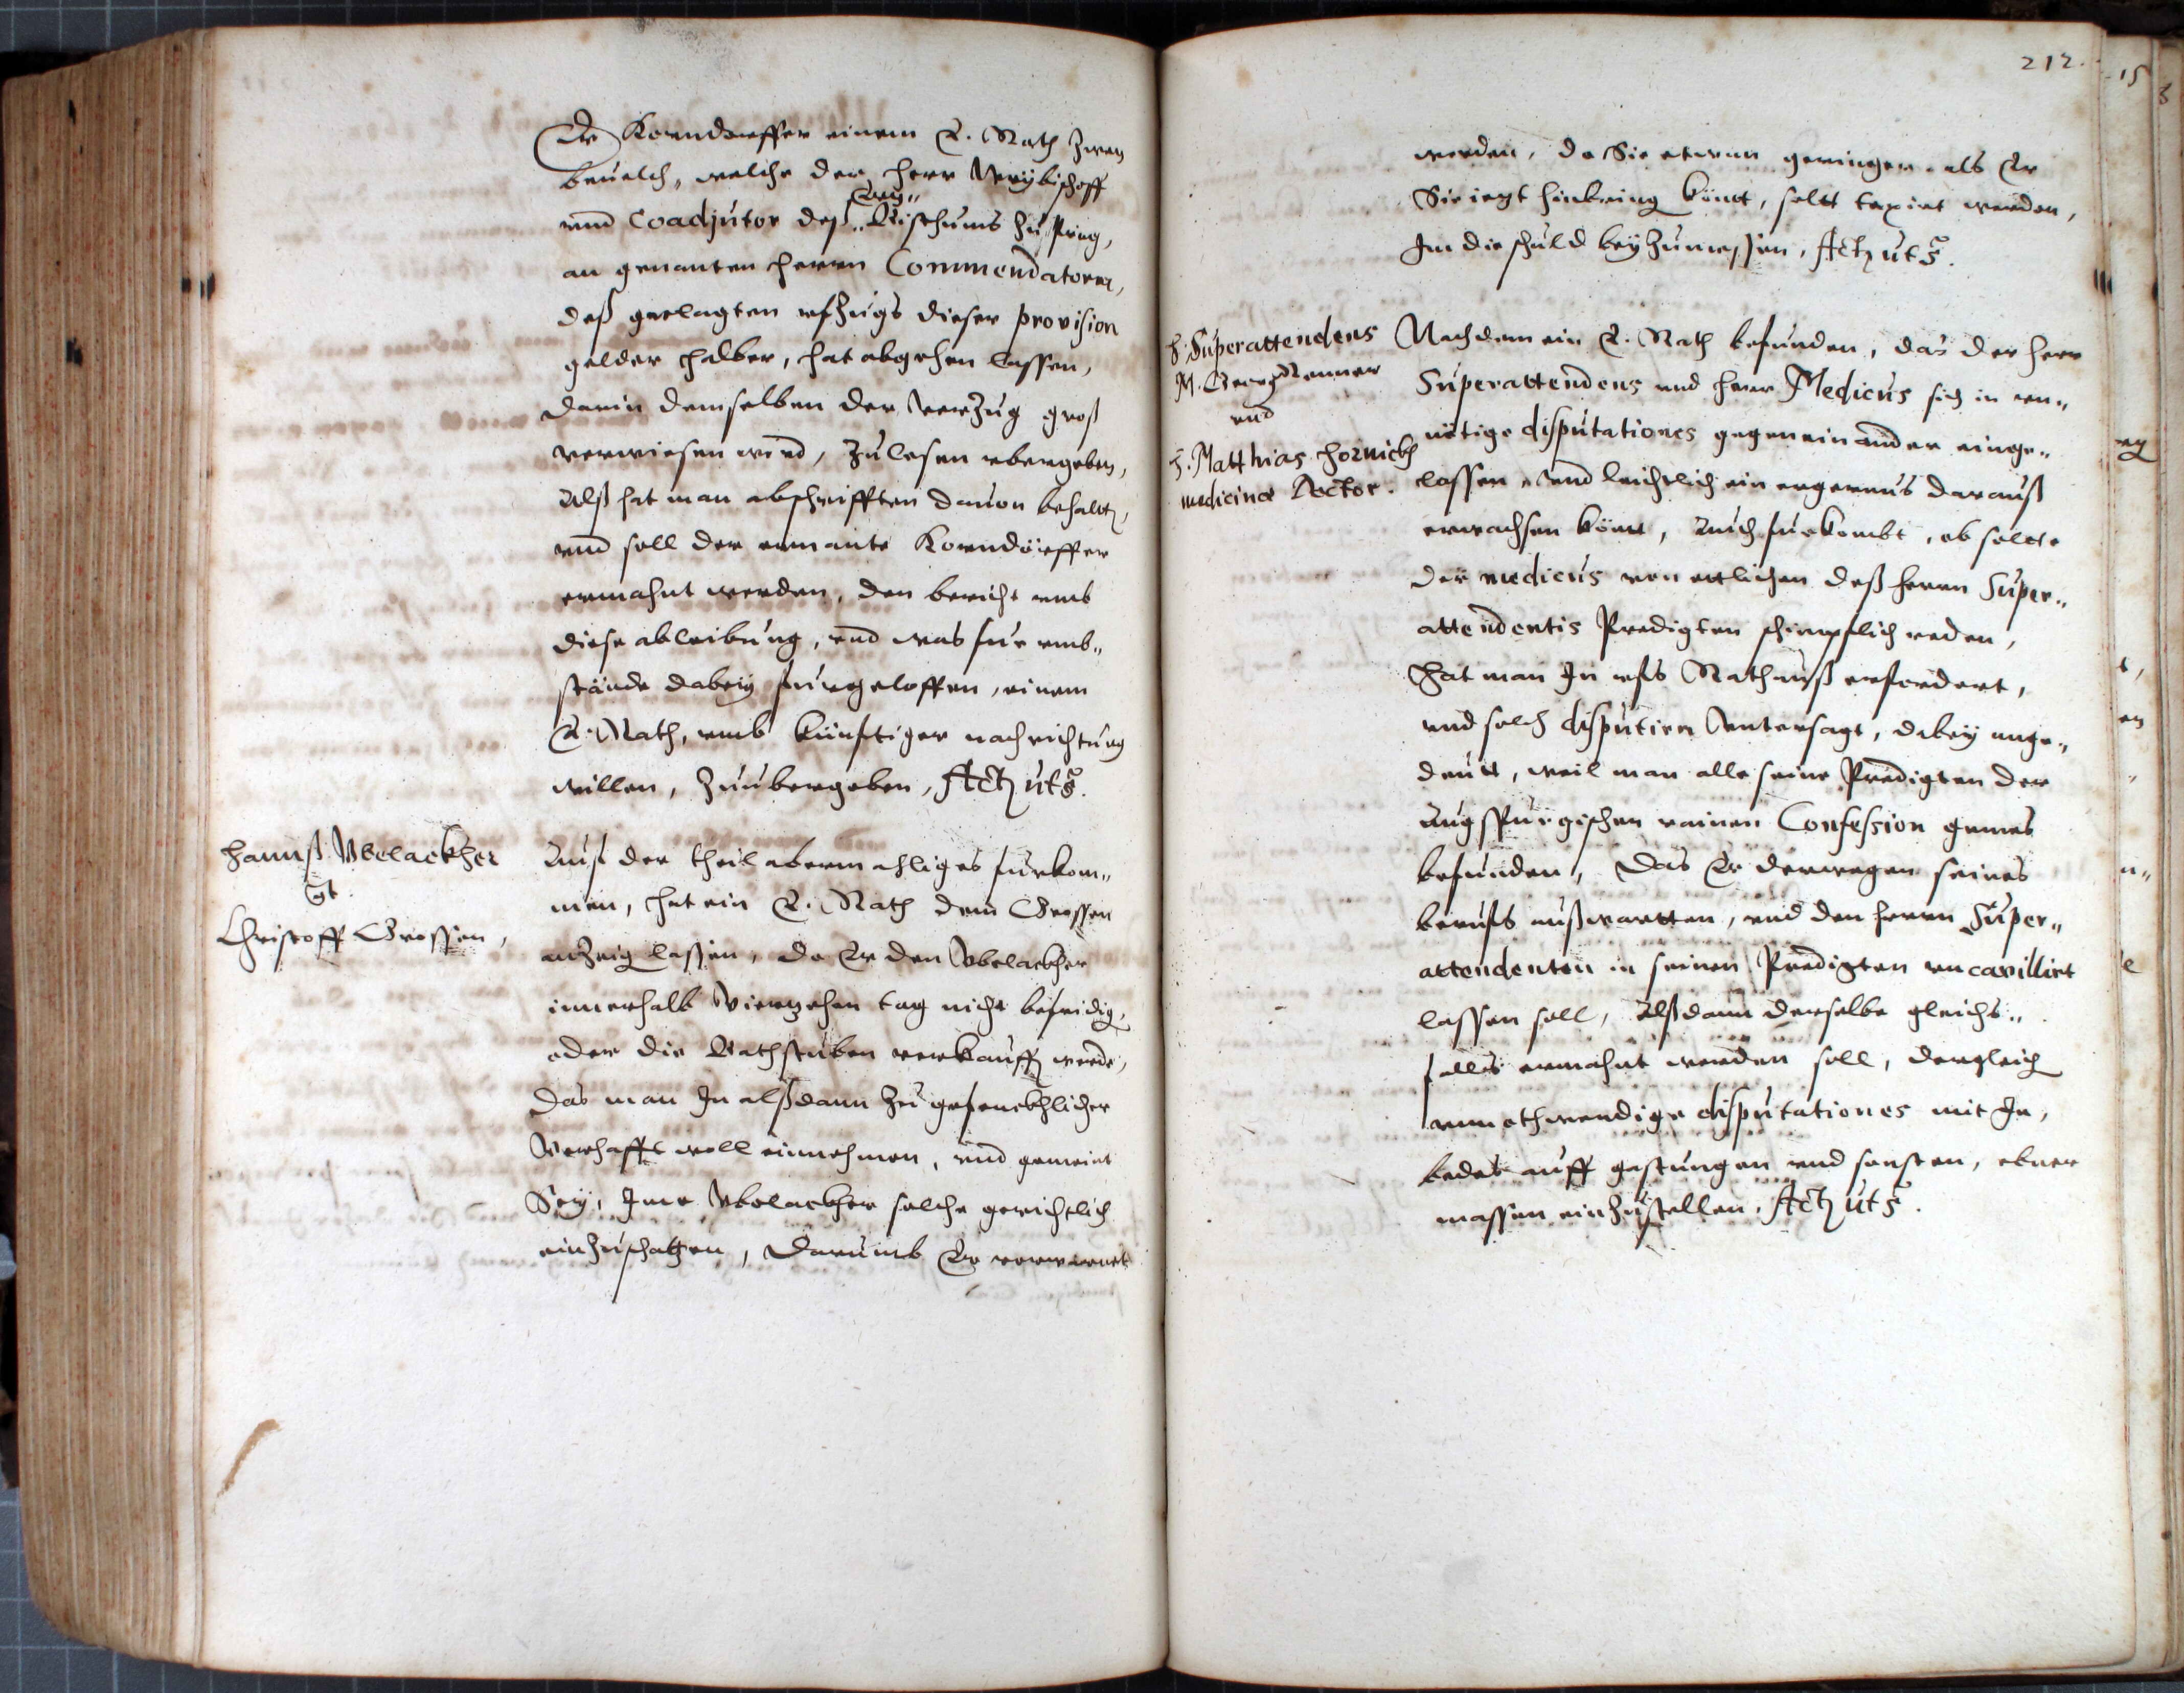 Er Korndorffer einem E. Rath zwen
beuelch, welche der herr Weyhbischoff
vnd Coadjutor deß Ertz„ Bisthumbs zu Prag,
an genanten herrn Commendatorn,
deß geclagten vfzugs dieser provision
gelder halber, hat abgehen lassen,
darin demselben der verzug groß
verwiesen wird, zulesen vbergeben,
Alß hat man abschrifften dauon behaltn,
vnd soll der ernante Korndörffer
ermahnt werden, den bericht vmb
diese ableibung, vnd was für vmb„
stände dabey fürgeloffen, einem
E. Rath, vmb künftiger nachrichtung
willen, zuübergeben, Actum uts.
Hannß Vbelackher
gt
Christoff Grossen,
Auf der theil abermahliges fürkom„
men, hat ein E. Rath dem Grossen
anzeig lassen, da Er den Vbelackher
innerhalb Vierzehen tag nicht befridig,
oder die Bathstuben verkauffn werde,
das man In alßdann zu gefenckhlicher
Verhafft woll einnehmen, vnd gemeint
Sey, Ime Vbelackher solche gerichtlich
einzuschatzen, darumb Er verwarnet
212.
werden, da Sie etwan geringer als Er
Sie ietzt hinbring könt, solt taxirt werden,
Im die schuld beyzumessen, Actum uts.
H. Superattendens
M. Georg Renner
vnd
H. Matthias Hornickh
medicinæ Doctor.
Nachdem ein E. Rath befunden, das der herr
Superattendens vnd herr Medicus sich in vn„
nötige disputationes gegen einander einge„
lassen, vnd leichtlich ein ergernus darauß
erwachsen könt, Auch fürkombt, ob solte
der medicus von ettlichen deß herrn Super„
attendentis Predigten schimpflich reden,
Hat man In vfs Rathauß erfordert,
vnd solch disputirn Vntersagt, dabey ange„
deut, weil man alle seine Predigten der
Augspurgischen rainen Confession gemes
befunden, Das Er derwegen seines
berufs außwartten, vnd den herrn Super„
attendenten in seinen Predigten vncavillirt
lassen soll, Alßdann derselbe gleichs„
falls ermahnt werden soll, dergleich
vnnothwendige disputationes mit Im,
bedes auff gastungen vnd sonsten, ebner
massen einzustellen. Actum uts.